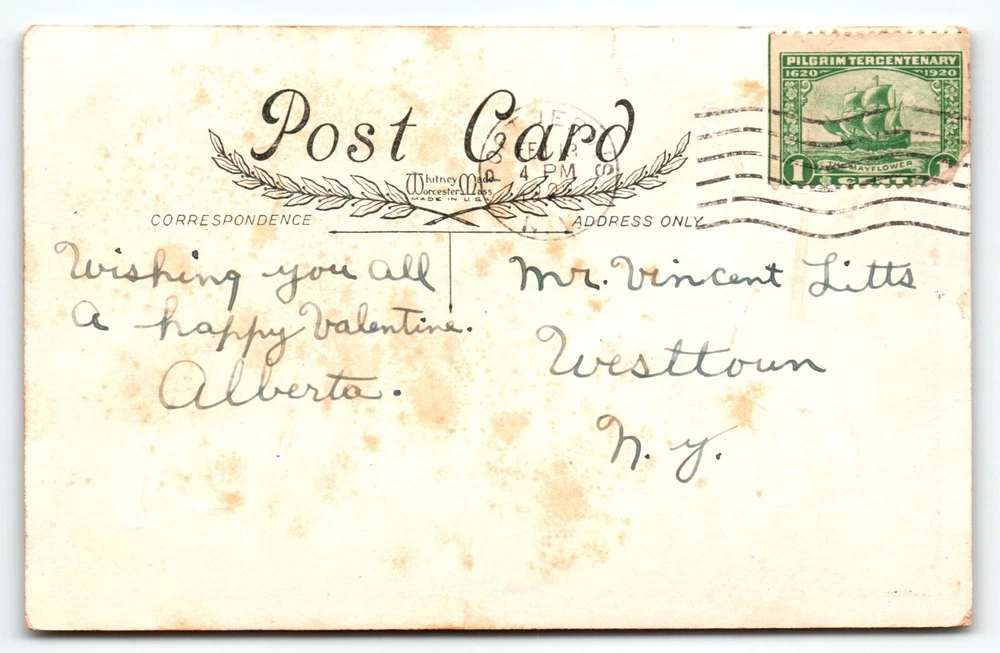 PILGRIM TERCENTENARY
1620 1920
THE MAYFLOWER
1
Post Card
4 PM
Whitney Made
Worcester, Mass.
MADE IN U.S.A.
CORRESPONDENCE
ADDRESS ONLY
Wishing you all
a happy Valentine.
Alberta.
Mr. Vincent Litts
Westtown
N. Y.